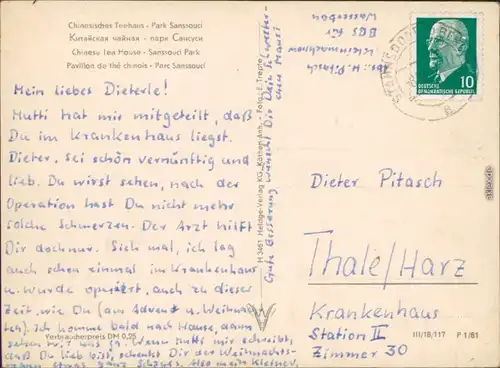 Chinesisches Teehaus - Park Sanssouci
Китайская чайная - парк Сансуси
Chinese Tea House - Sanssouci Park
Pavillon de thé chinois - Parc Sanssouci
Mein liebes Dieterle!
Mutti hat mir mitgeteilt, daß
Du im Krankenhaus liegst.
Dieter, sei schön vernünftig und
lieb. Du wirst sehen, nach der
Operation hast Du nicht mehr
solche Schmerzen. Der Arzt hilft
Dir doch nur. Sieh mal, ich lag
auch schon einmal im Krankenhaus
u. wurde operiert, auch zu dieser
Zeit, wie Du (am Advent u. Weihnach-
ten). Ich komme bald nach Hause, dann
sehen wir uns ja. Wenn Mutti mir schreibt,
daß Du lieb bist, schenkt Dir der Weihnachts-
mann etwas ganz Schönes. Also mein Kleiner,
Gute Besserung wünscht Dir Dein Schwester-
chen
Verbraucherpreis DM 0,25
H 3461 Heldge-Verlag KG., Köthen Anh. - Foto: E. Trepte
Abs.: H. Pitasch
Kleinmachnow
BBS für
Wasserbau
DEUTSCHE
DEMOKRATISCHE REPUBLIK
10
Dieter Pitasch
Thale/Harz
Krankenhaus
Station II
Zimmer 30
III/18/117 P 1/61